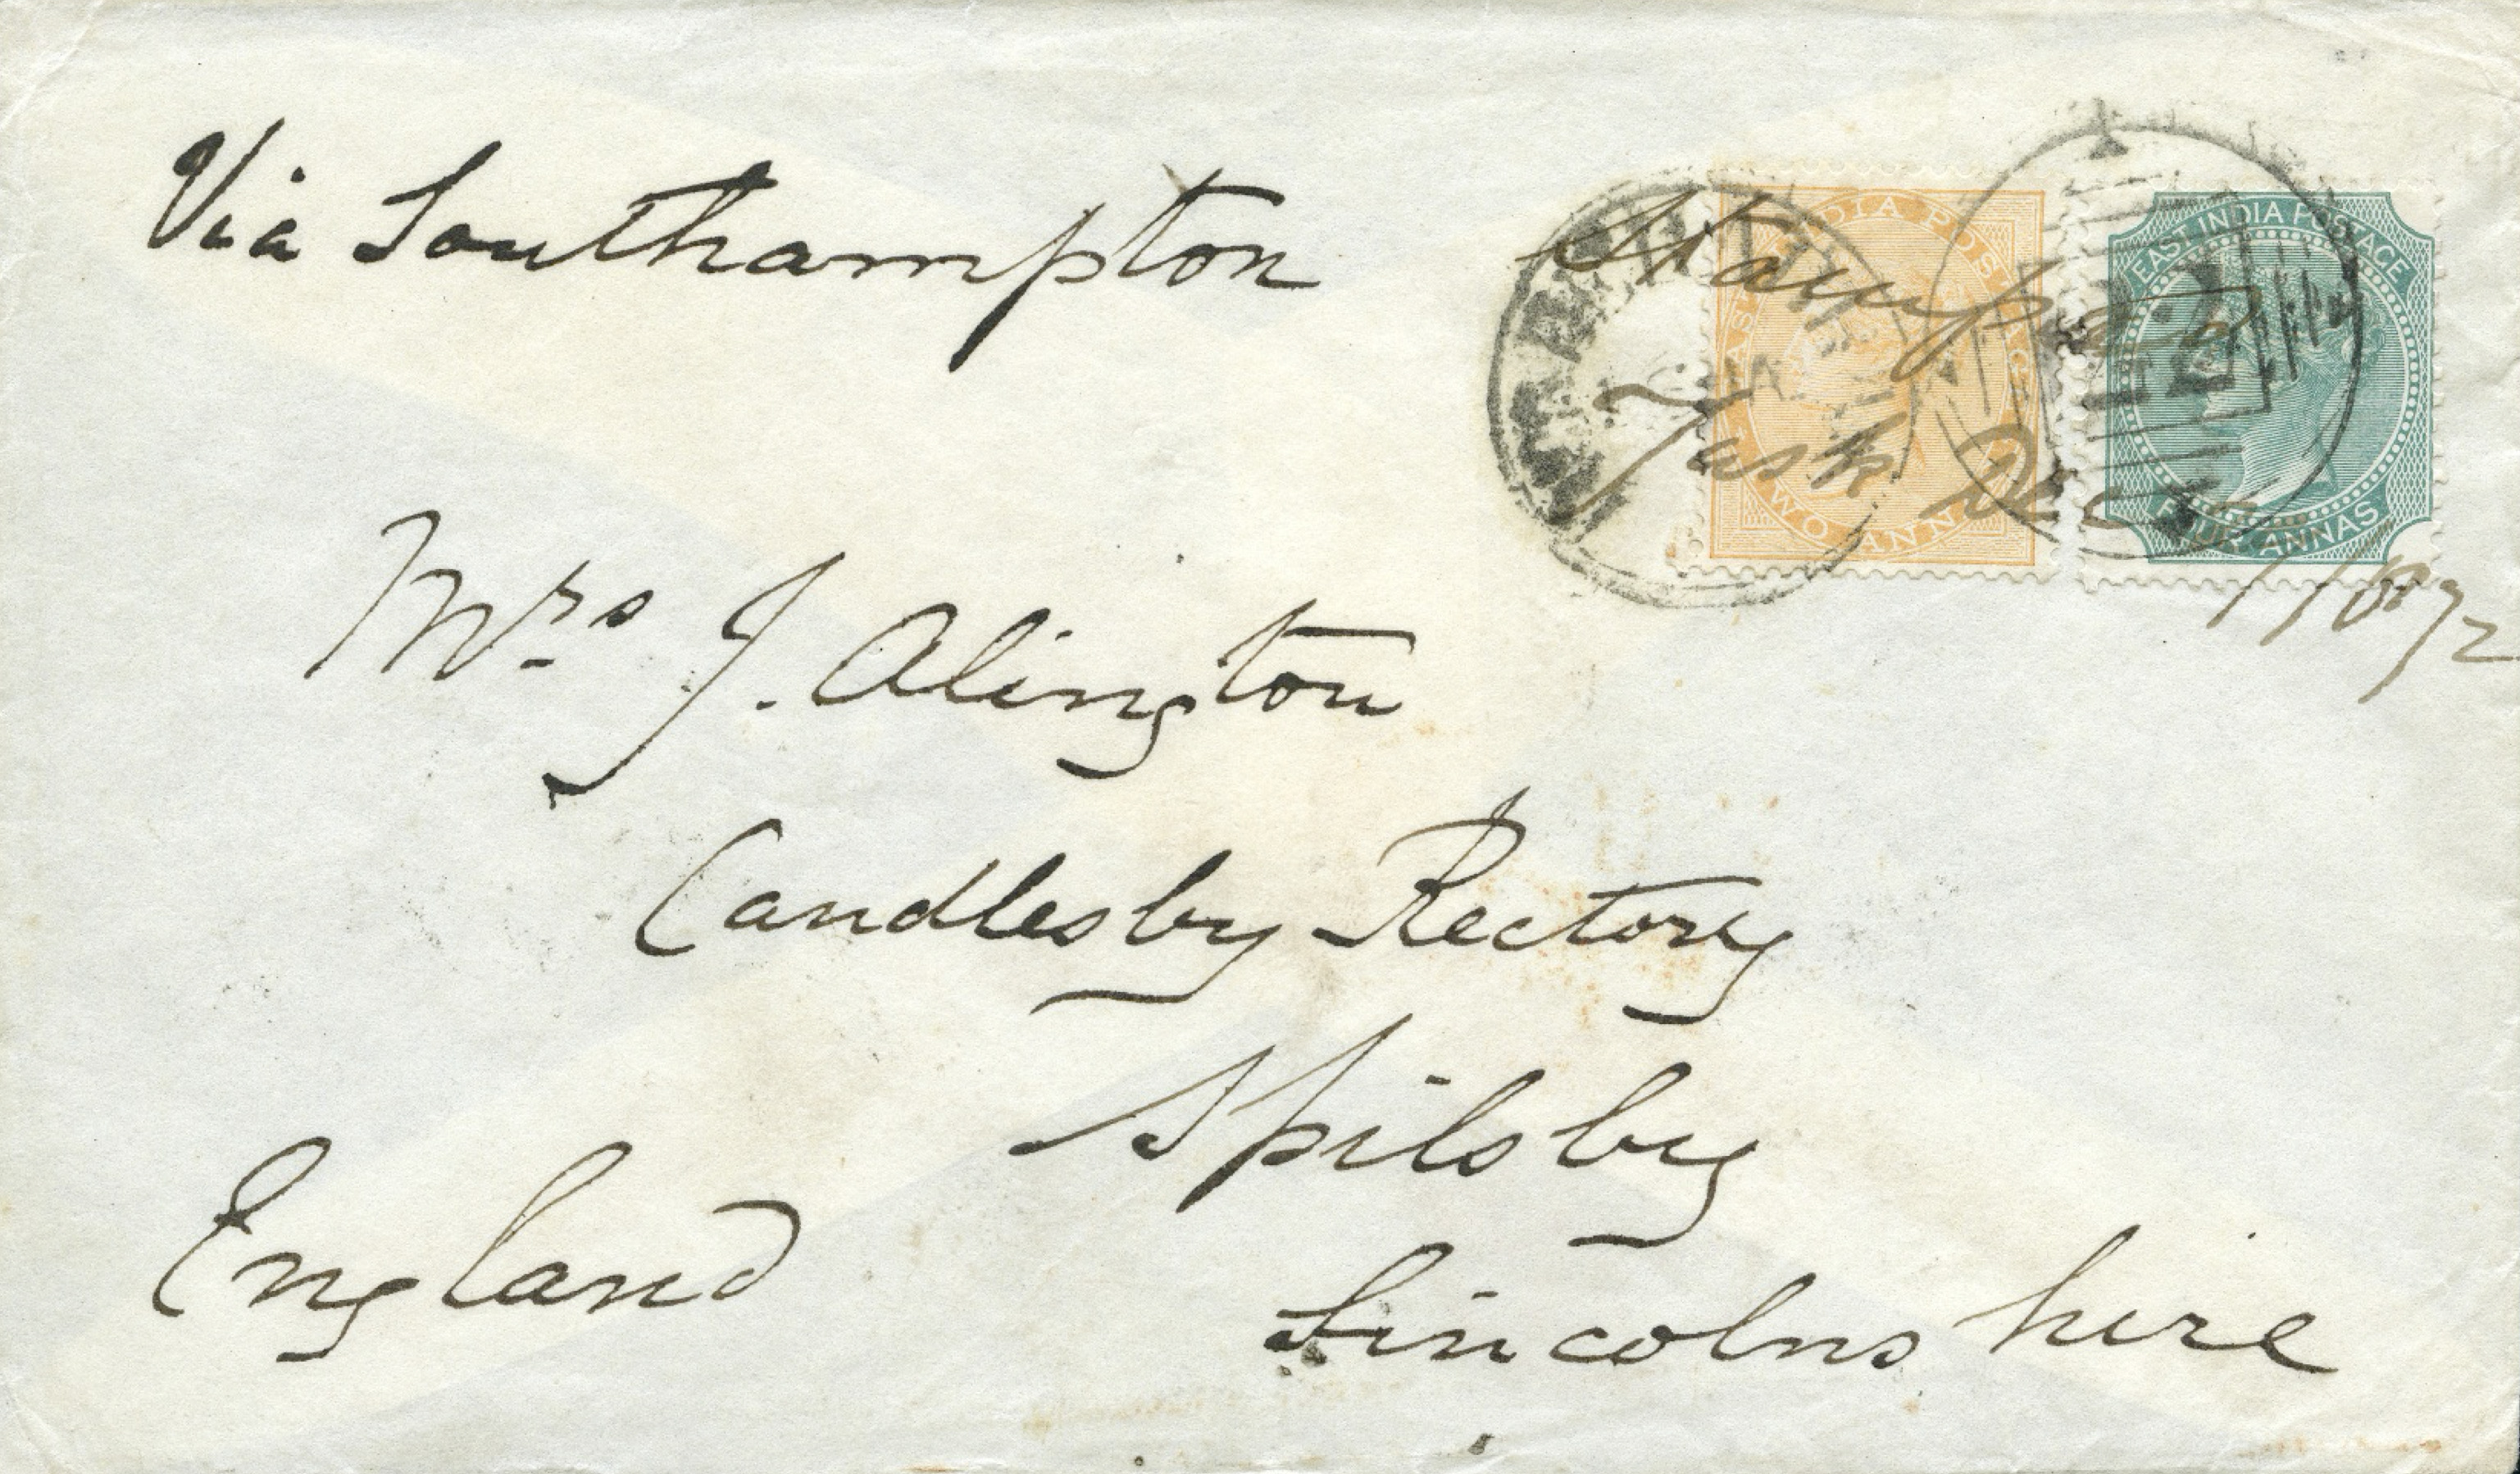 Via Southampton
Stamped
Task Dec
1/1872
EAST INDIA POSTAGE
TWO ANNAS
EAST INDIA POSTAGE
FOUR ANNAS
Mrs J. Alington
Candlesby Rectory
Spilsby
England
Lincolnshire